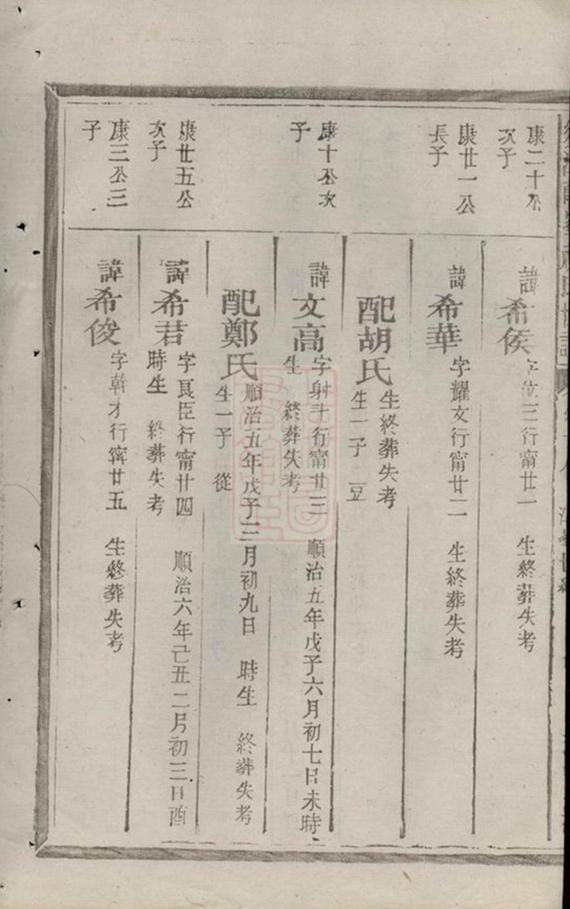 康二十公
次子
諱希侯
字位三行甯廿一 生終葬失考
康廿一公
長子
諱希華
字耀文行甯廿二 生終葬失考
配胡氏
生終葬失考
生一子 豆
康十公次
子
諱文高
字射斗行甯廿三 順治五年戊子六月初七日未時
生 終葬失考
配鄭氏
順治五年戊子三月初九日 時生 終葬失考
生一子 從
康廿五公
次子
諱希君
字良臣行甯廿四 順治六年己丑二月初三日酉
時生 終葬失考
康三公三
子
諱希俊
字幹才行甯廿五 生終葬失考